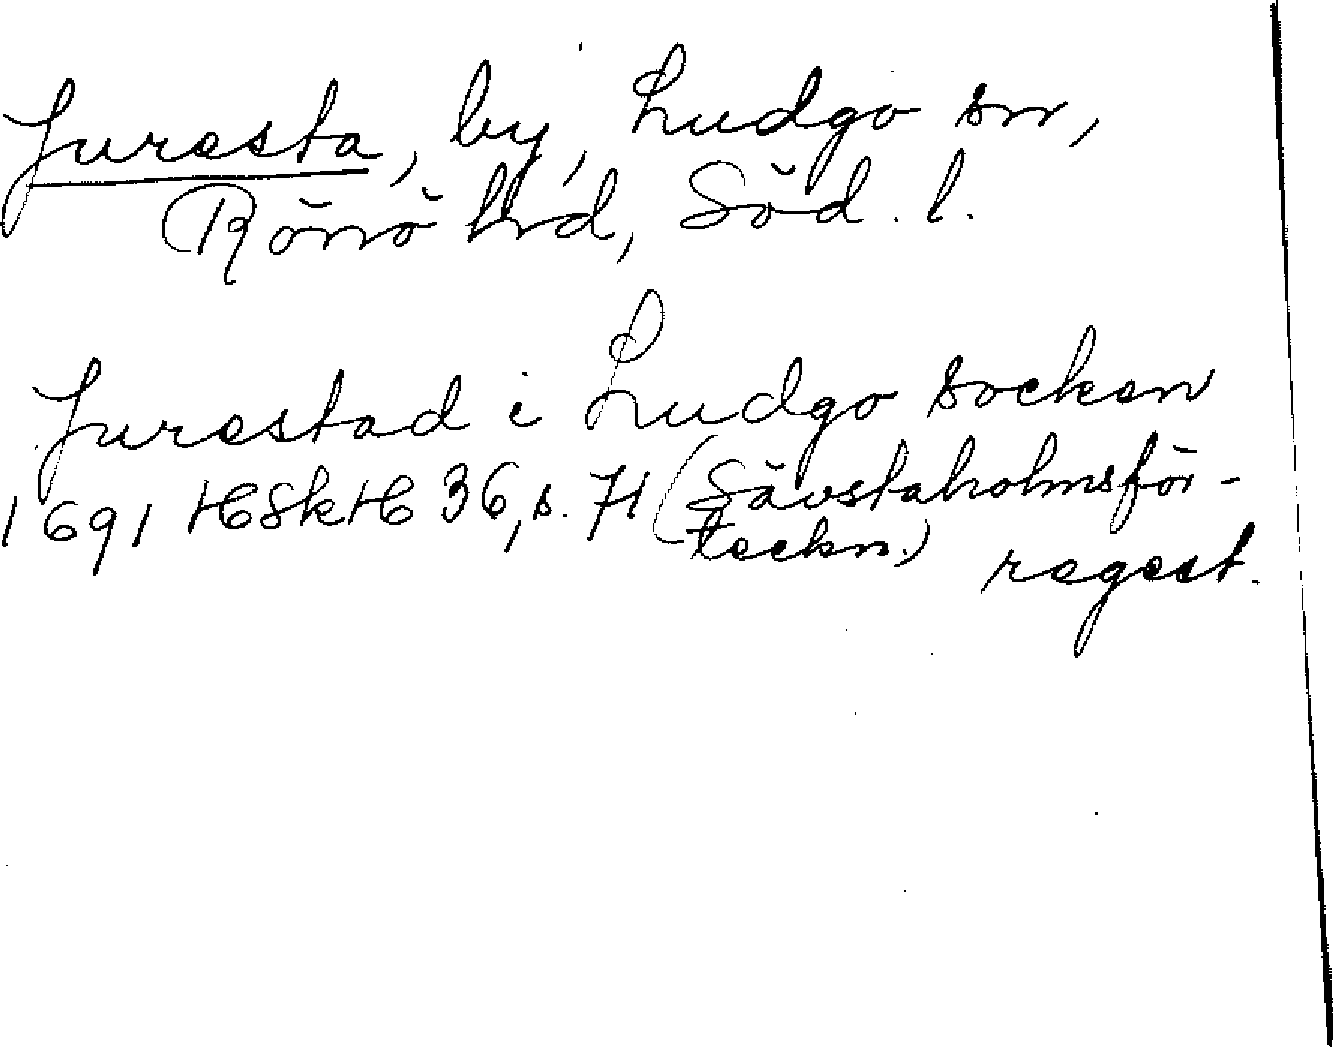 Juresta, by, Ludgo sn,
Rönö hrd, Söd. l.
Jurestad i Ludgo socken
1691 HSkH 36, s. 71 (Sävstaholmsför-
teckn.) regest.